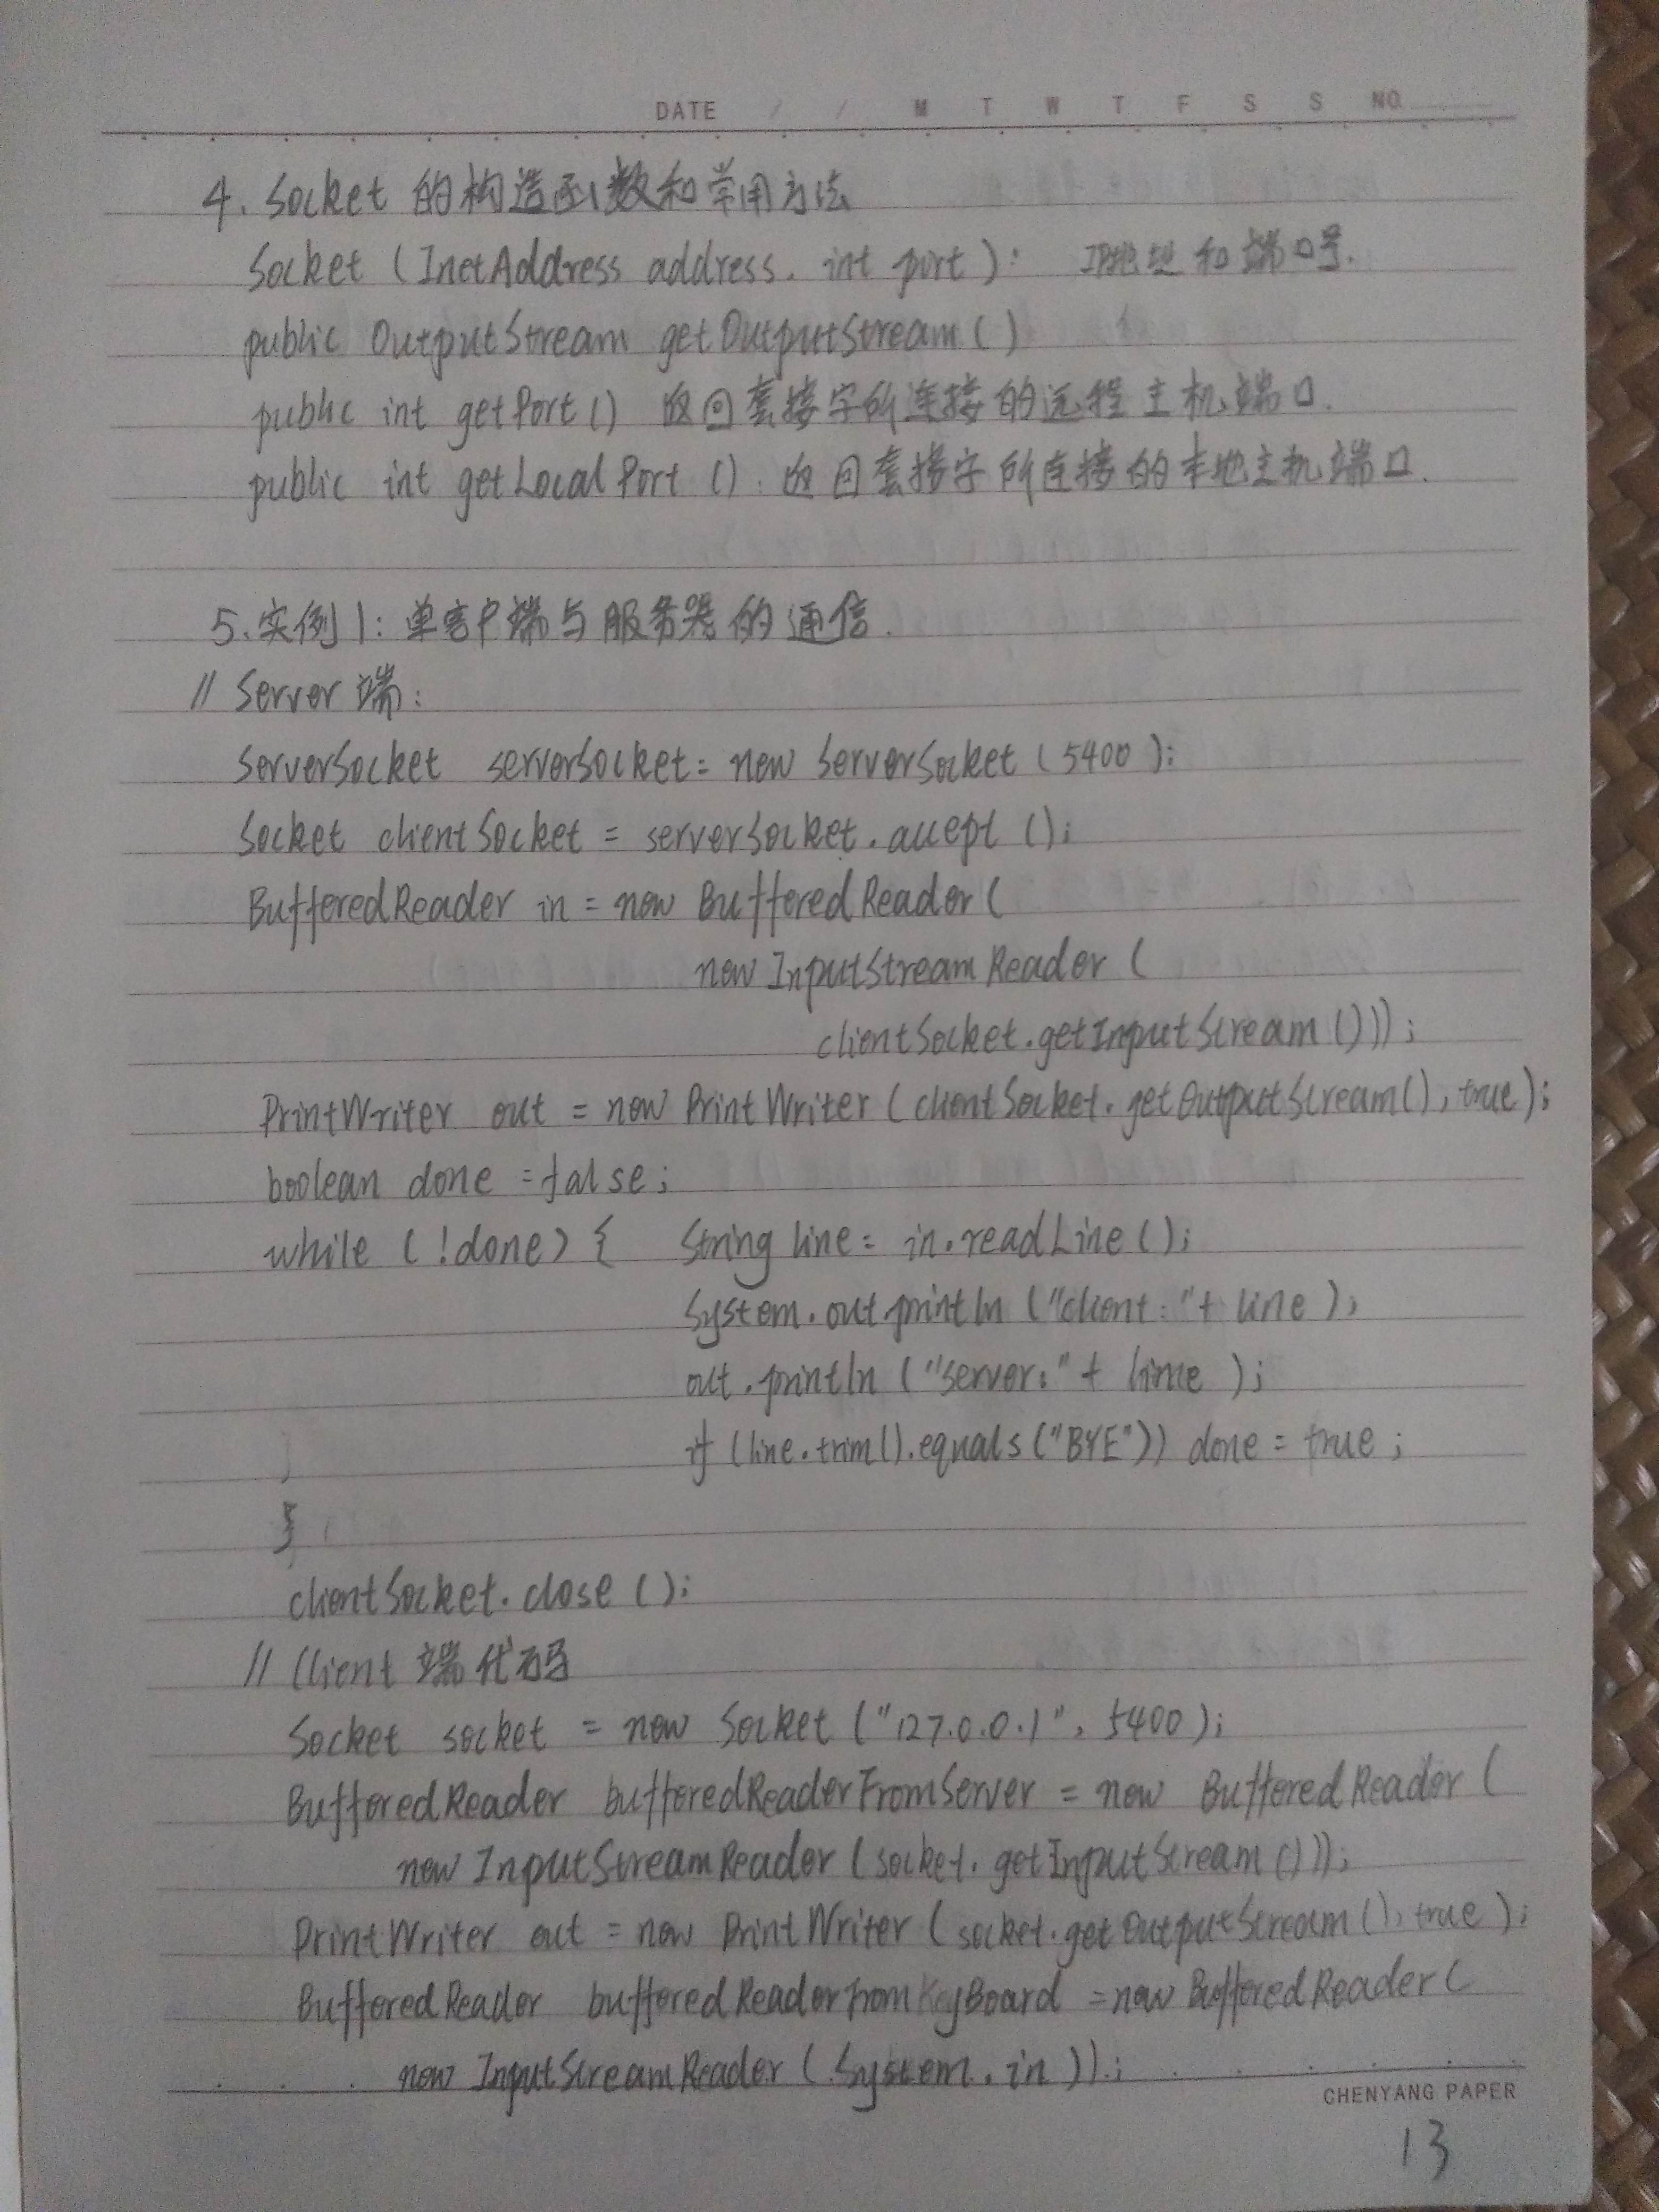 DATE / / M T W T F S S NO.
4. Socket 的构造函数和常用方法
Socket (InetAddress address, int port): IP地址和端口号.
public OutputStream getOutputStream()
public int getPort() 返回套接字所连接的远程主机端口.
public int getLocalPort(). 返回套接字所连接的本地主机端口.
5.实例1: 单客户端与服务器的通信.
// Server端:
ServerSocket serverSocket = new ServerSocket(5400);
Socket clientSocket = serverSocket.accept();
BufferedReader in = new BufferedReader(
new InputStreamReader(
clientSocket.getInputStream()));
PrintWriter out = new PrintWriter(clientSocket.getOutputStream(), true);
boolean done = false;
while (!done) { String line = in.readLine();
System.out.println("client:"+ line);
out.println("server:" + line);
if (line.trim().equals("BYE")) done = true;
}
clientSocket.close();
// Client 端代码
Socket socket = new Socket("127.0.0.1", 5400);
BufferedReader bufferedReaderFromServer = new BufferedReader(
new InputStreamReader(socket.getInputStream()));
PrintWriter out = new PrintWriter(socket.getOutputStream(), true);
BufferedReader bufferedReaderFromKeyBoard = new BufferedReader(
new InputStreamReader(System.in));
CHENYANG PAPER
13